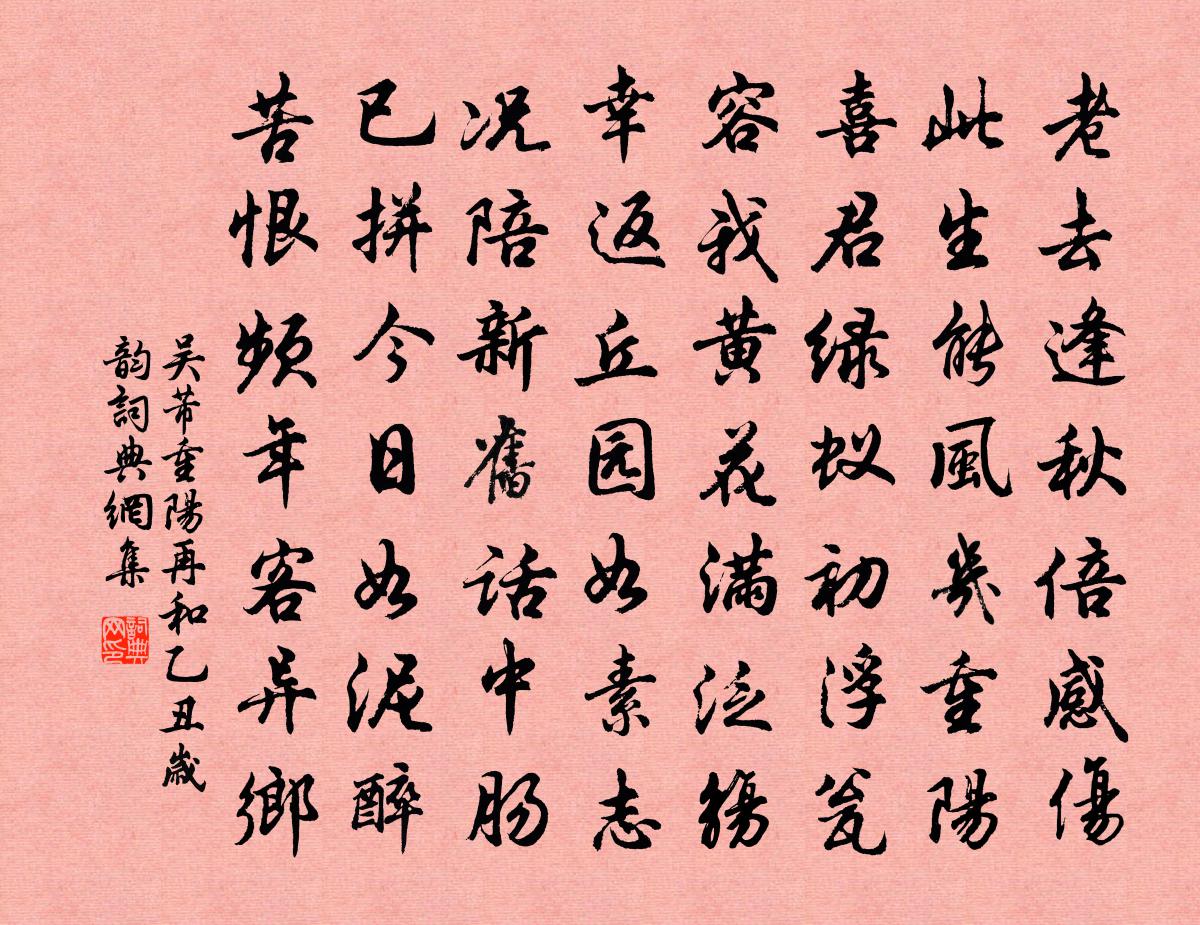 老去逢秋倍感傷
此生能風幾重陽
喜君绿蚁初浮瓮
容我黄花满泛觴
幸返丘园如素志
况陪新舊话中肠
已拼今日如泥醉
苦恨频年客异鄉
吴芾重陽再和乙丑歲
韵詞典網集
詞典网印